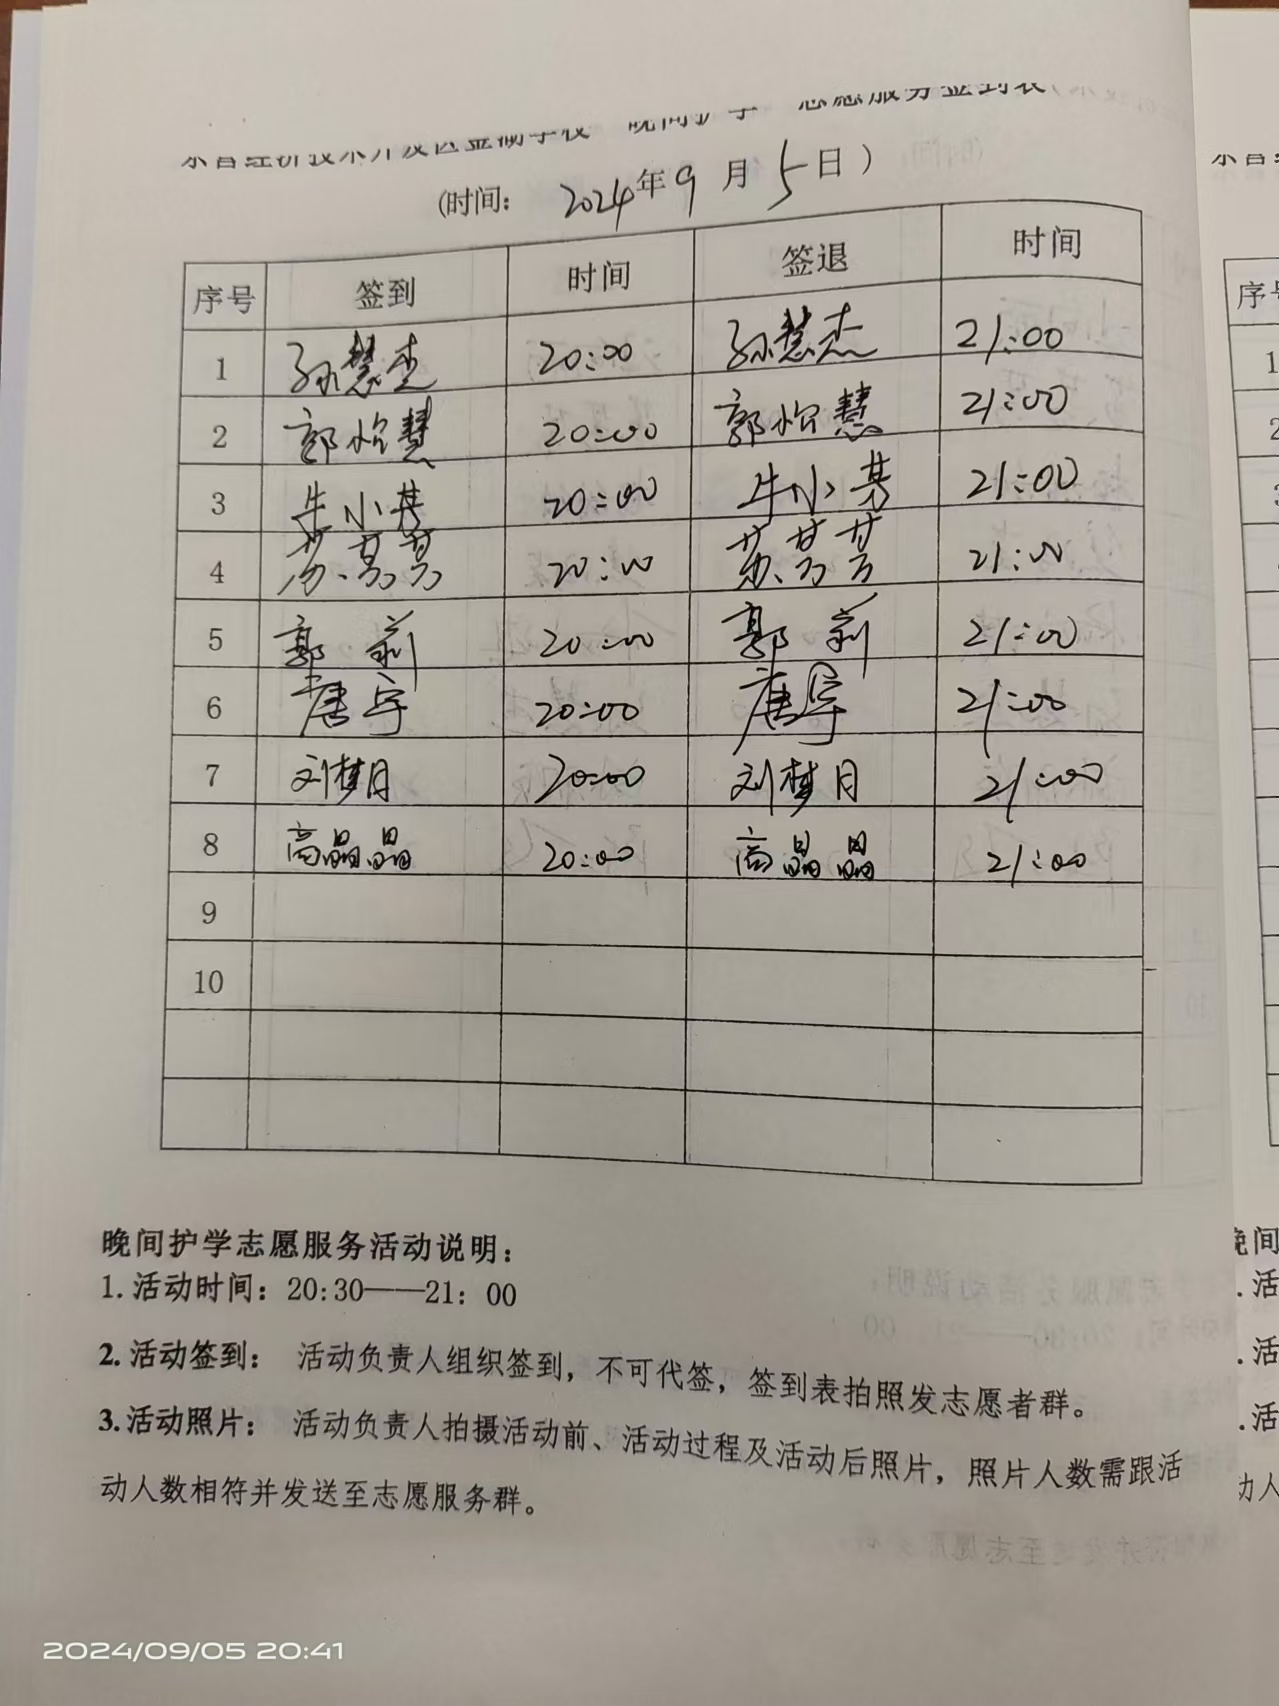 东营经济技术开发区金湖学校 晚间护学 志愿服务签到表
(时间: 2024年9月5日)
序号 签到 时间 签退 时间
1 孙慧杰 20:00 孙慧杰 21:00
2 郭怡慧 20:00 郭怡慧 21:00
3 牛小芳 20:00 牛小芳 21:00
4 苏芳芳 20:00 苏芳芳 21:00
5 郭莉 20:00 郭莉 21:00
6 唐宇 20:00 唐宇 21:00
7 刘梦月 20:00 刘梦月 21:00
8 高晶晶 20:00 高晶晶 21:00
9
10
晚间护学志愿服务活动说明:
1.活动时间:20:30——21:00
2.活动签到: 活动负责人组织签到,不可代签,签到表拍照发志愿者群。
3.活动照片: 活动负责人拍摄活动前、活动过程及活动后照片,照片人数需跟活
动人数相符并发送至志愿服务群。
2024/09/05 20:41